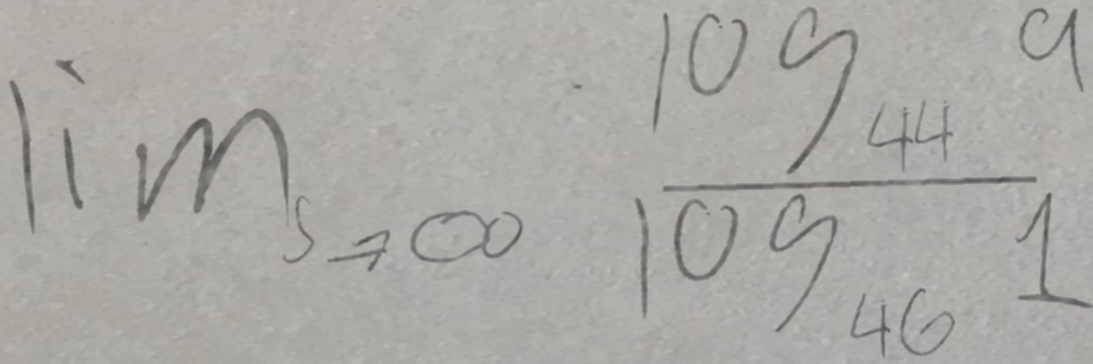 lim_{s→∞} \frac{log_{44} 9}{log_{46} 1}